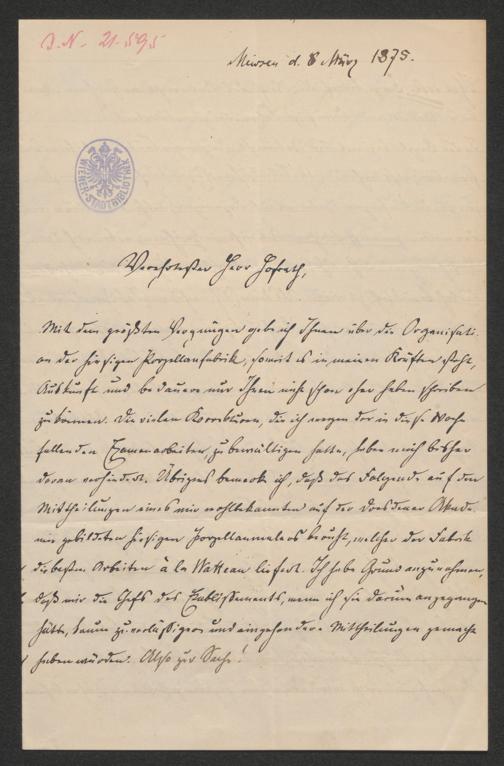 J. N. 21.595
Meissen d. 8 März 1875.
WIENER-STADTBIBLIOTHEK
Verehrtester Herr Hofrath,
Mit dem größten Vergnügen gebe ich Ihnen über die Organisati-
on der hiesigen Porzellanfabrik, soweit es in meinen Kräften steht,
Auskunft und bedauere nur Ihnen nicht schon eher haben schreiben
zu können. Die vielen Korrekturen, die ich wegen der in diese Woche
fallenden Examenarbeiten, zu bewältigen hatte, haben mich bisher
daran verhindert. Übrigens bemerke ich, daß das Folgende auf den
Mittheilungen eines mir wohlbekannten auf der Dresdener Akade-
mie gebildeten hiesigen Porzellanmalers beruht, welcher der Fabrik
die besten Arbeiten à la Watteau liefert. Ich habe Grund anzunehmen,
daß mir die Chefs des Etablissements, wenn ich sie darum angegangen
hätte, kaum zuverlässigere und eingehendere Mittheilungen gemacht
haben würden. Also zur Sache!